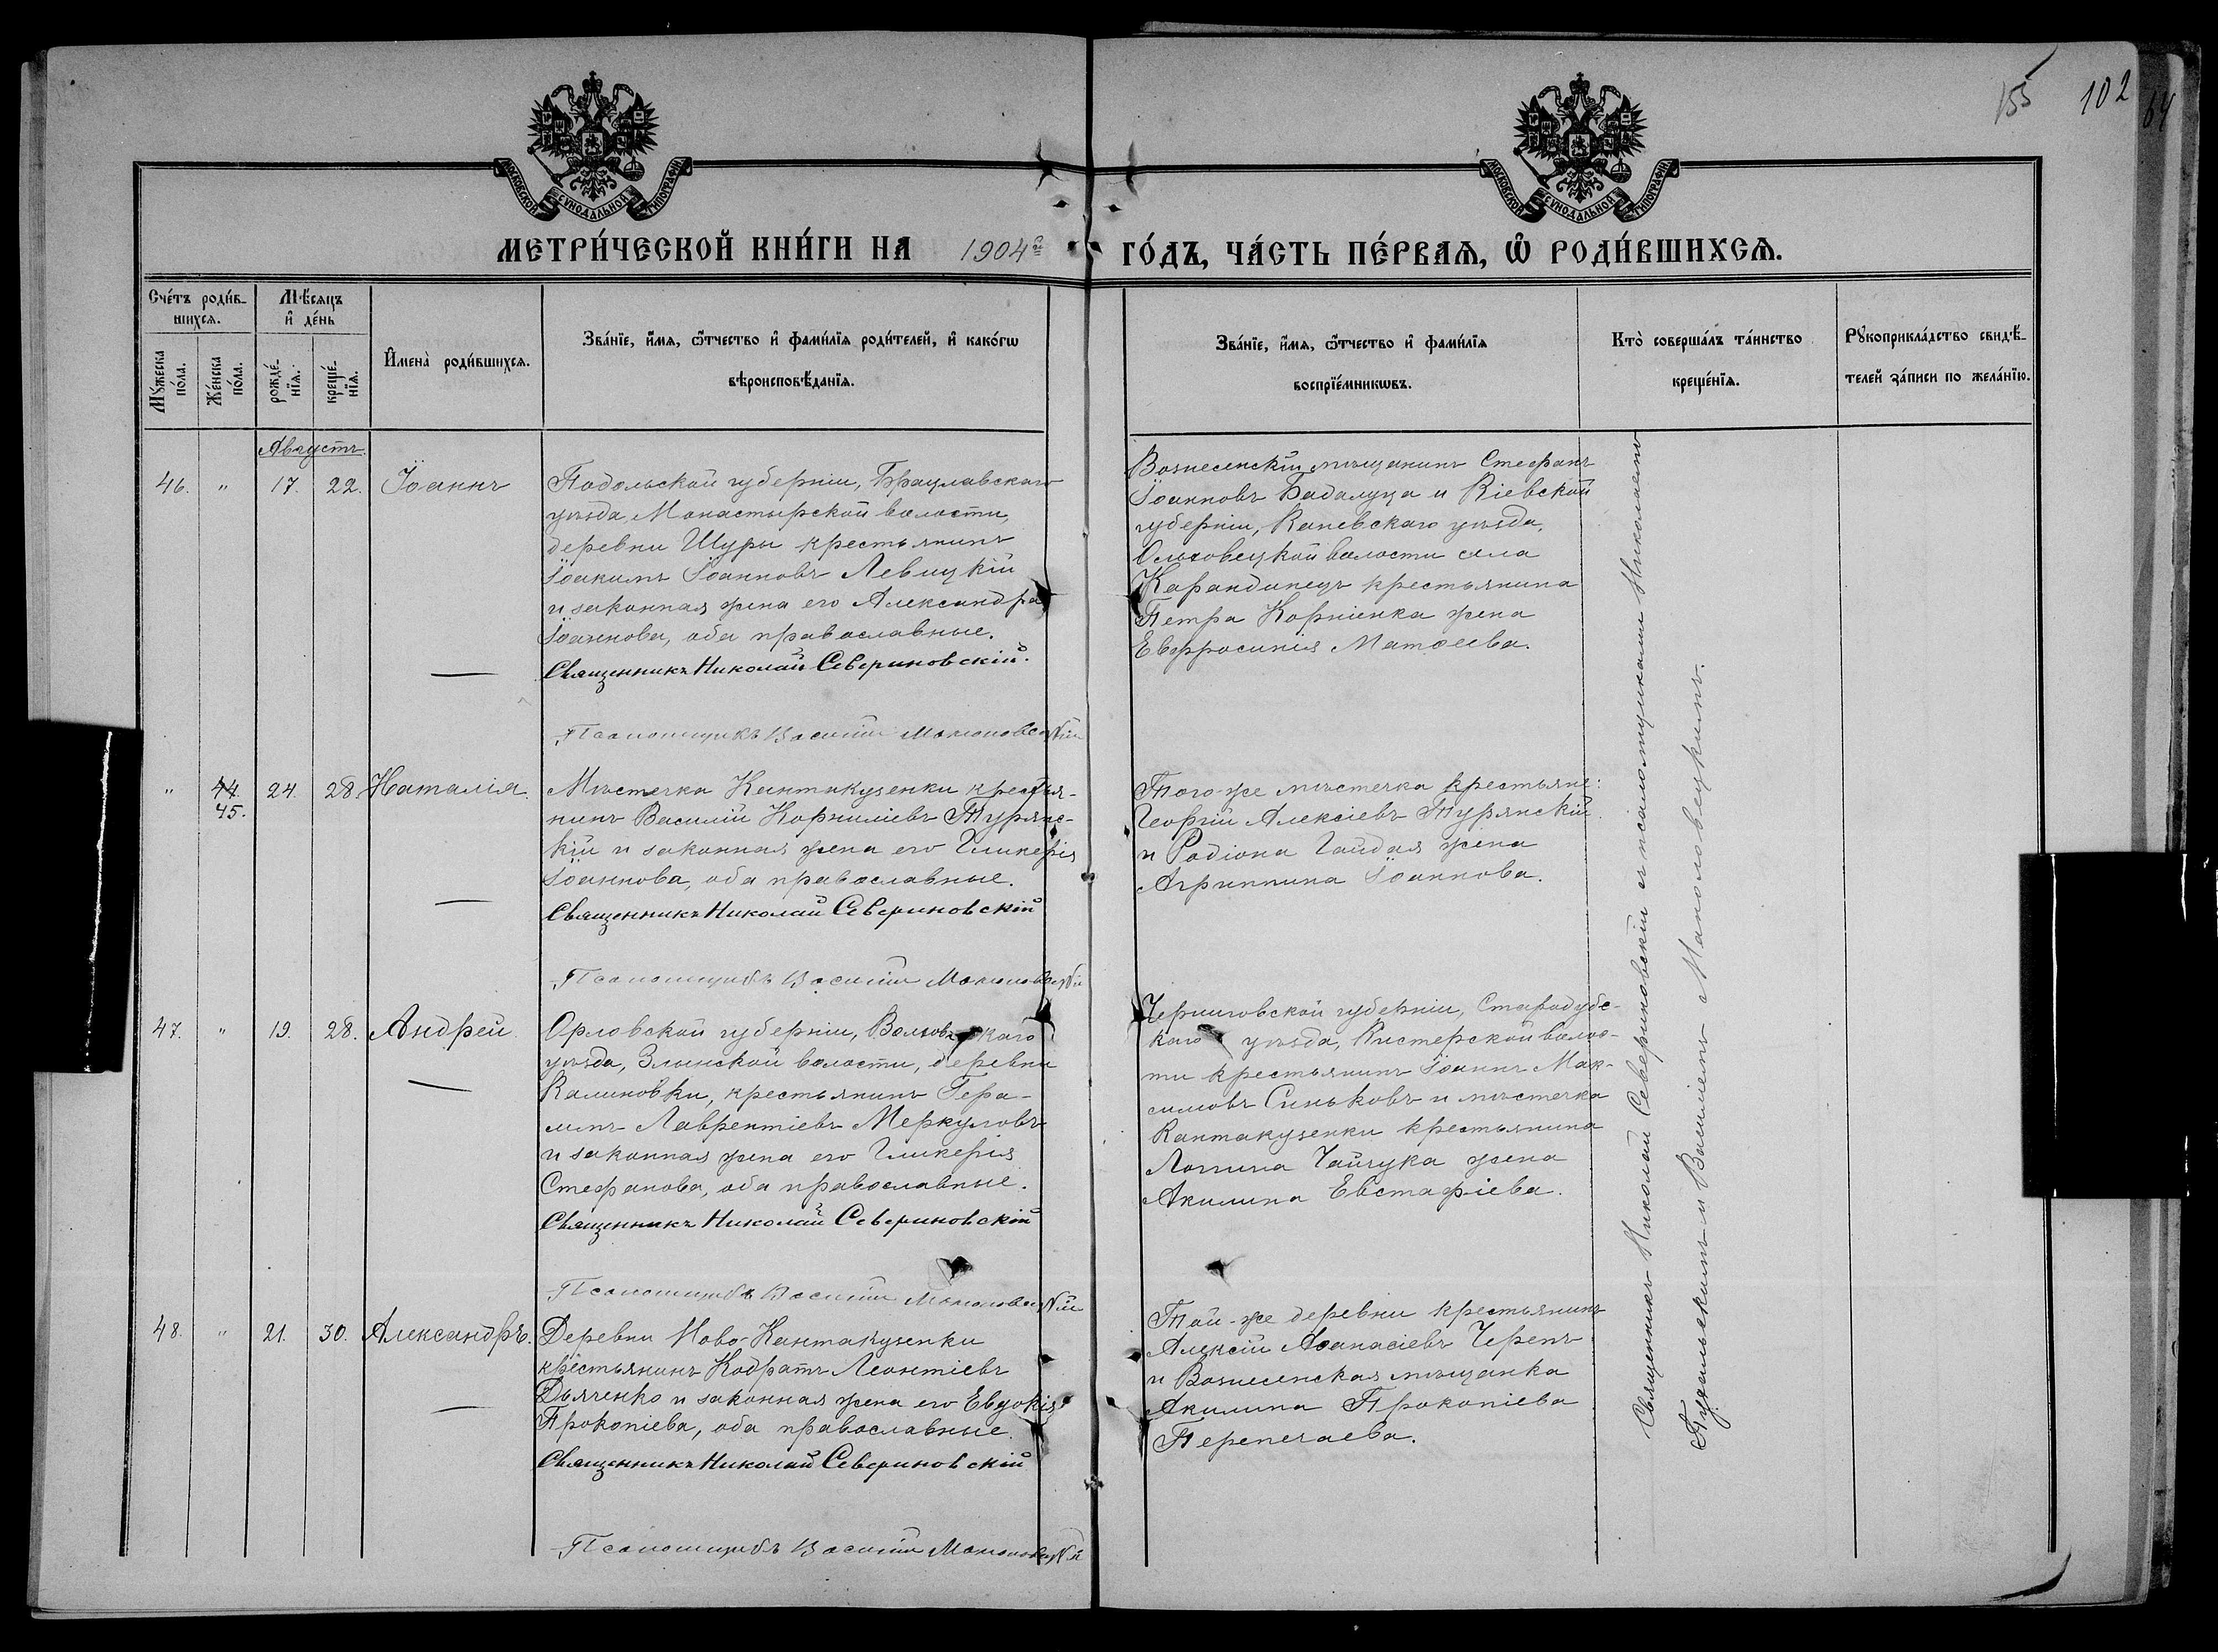 155 102 64
МОСКОВСКОЙ СѴНОДАЛЬНОЙ ТИПОГРАФІИ
МОСКОВСКОЙ СѴНОДАЛЬНОЙ ТИПОГРАФІИ
МЕТРИ́ЧЕСКОЙ КНИ́ГИ НА 1904й ГО́ДЪ, ЧА́СТЬ ПЕ́РВАѦ, Ѿ РОДИ́ВШИХСѦ.
Сче́тъ роди́в-
шихсѧ.
Мꙋ́жеска по́ла.
Же́нска по́ла.
Мѣ́сѧцъ
и҆ де́нь
рожде́-
нїѧ.
креще́-
нїѧ.
И҆мена̀ роди́вшихсѧ.
Зва́нїе, и҆́мѧ, ѻ҆́тчество и҆ фами́лїѧ роди́телей, и҆ како́гѡ
вѣроисповѣ́данїѧ.
Зва́нїе, и҆́мѧ, ѻ҆́тчество и҆ фами́лїѧ
воспрїе́мникѡвъ.
Кто̀ соверша́лъ та́инство
креще́нїѧ.
Рꙋкоприкла́дство свидѣ́-
телей за́писи по жела́нїю.
Августъ.
46. " 17. 22. Іоаннъ
Подольской губерніи, Брацлавскаго
уѣзда, Монастырской волости,
деревни Щуры крестьянинъ
Іоакимъ Іоанновъ Левицкій
и законная жена его Александра
Іоаннова, оба православные.
Священникъ Николай Севериновскій.
Псаломщикъ Василій Маколовецкій
Вознесенскій мѣщанинъ Стефанъ
Іоанновъ Бадалуца и Кіевской
губерніи, Каневскаго уѣзда,
Ольховецкой волости села
Карандинецъ крестьянина
Петра Корніенка жена
Евфросинія Матѳеева.
" 44. 45. 24. 28. Наталія.
Мѣстечка Кантакузенки крестья-
нинъ Василій Корниліевъ Турянс-
кій и законная жена его Гликерія
Іоаннова, оба православные.
Священникъ Николай Севериновскій
Псаломщикъ Василій Маколовецкій
Того-же мѣстечка крестьяне:
Георгій Алексіевъ Турянскій
и Родіона Гайдая жена
Агриппина Іоаннова.
47. " 19. 28. Андрей
Орловской губерніи, Волховскаго
уѣзда, Злынской волости, деревни
Калиновки, крестьянинъ Гера-
симъ Лаврентіевъ Меркуловъ
и законная жена его Гликерія
Стефанова, оба православные.
Священникъ Николай Севериновскій
Псаломщикъ Василій Маколовецкій
Черниговской губерніи, Стародубс-
каго уѣзда, Кистерской волос-
ти крестьянинъ Іоаннъ Мак-
симовъ Синьковъ и мѣстечка
Кантакузенки крестьянина
Логгина Чайчука жена
Акилина Евстафіева.
48. " 21. 30. Александръ.
Деревни Ново-Кантакузенки
крестьянинъ Кодратъ Леонтіевъ
Дьяченко и законная жена его Евдокія
Прокопіева, оба православные.
Священникъ Николай Севериновскій
Псаломщикъ Василій Маколовецкій
Той-же деревни крестьянинъ
Алексій Аѳанасіевъ Черепъ
и Вознесенская мѣщанка
Акилина Прокопіева
Перепечаева.
Священникъ Николай Севериновскій съ псаломщиками Николаемъ
и Василіемъ Маколовецкимъ.